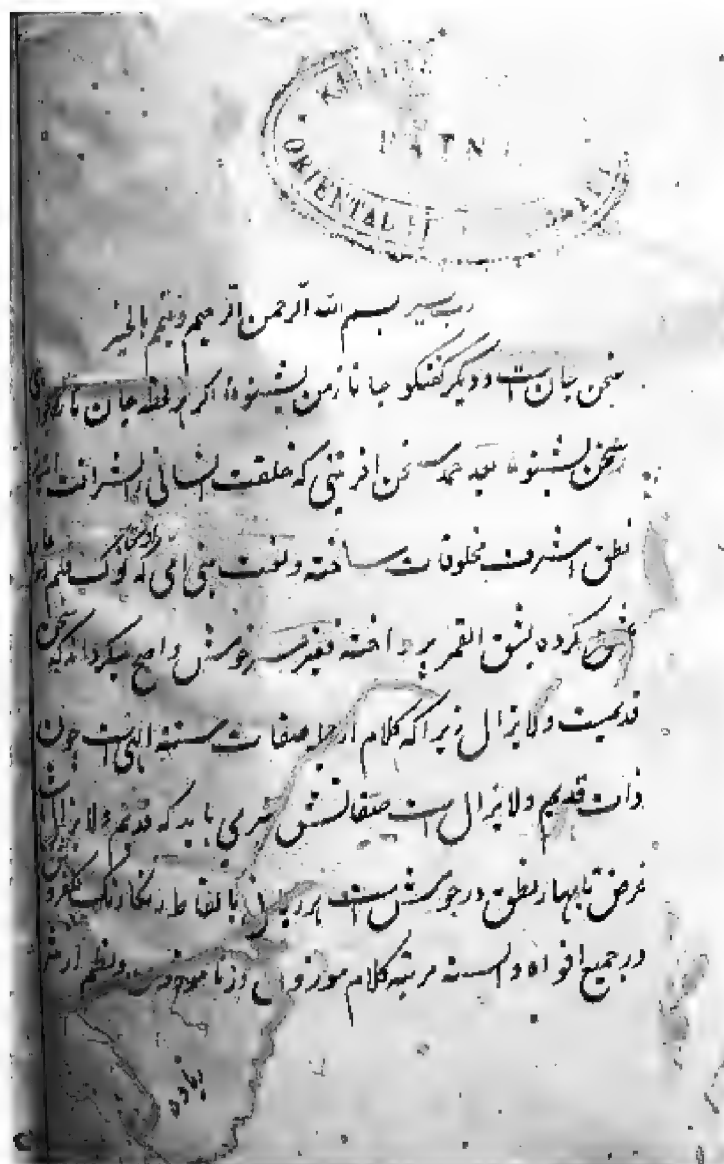 PATN
ORIENTAL
رب یسر بسم الله الرحمن الرحیم وتمم بالخیر
سخن جان است و دیگر گفتگو جانا ز من بشنو اگر هر لحظه جان تازه
سخن بشنو بعد حمد سخن آفرینی که خلقت انسانی را بشرافت
نطق اشرف مخلوقات ساخته و نعت نبی امی که نوک قلم
شق کرده بشق القمر پرداخته فقیر واضح میگرداند که سخن
قدیمست و لایزال زیرا که کلام از جمله صفات سته الهی است چون
ذات قدیم و لایزال است صفاتش می باید که قدیم و لایزال
غرض تا بهار نطق در جوش است هر زبان بالفاظ رنگارنگ
در جمیع افواه و السنه مرتبه کلام موزون از ناموزون و نظم از نثر
زیاده